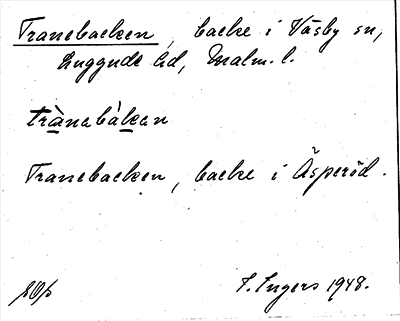 Tranebacken, backe i Väsby sn,
Luggude hd, Malm. l.
trànabàkan
Tranebacken, backe i Äsperöd.
I. Ingers 1948.